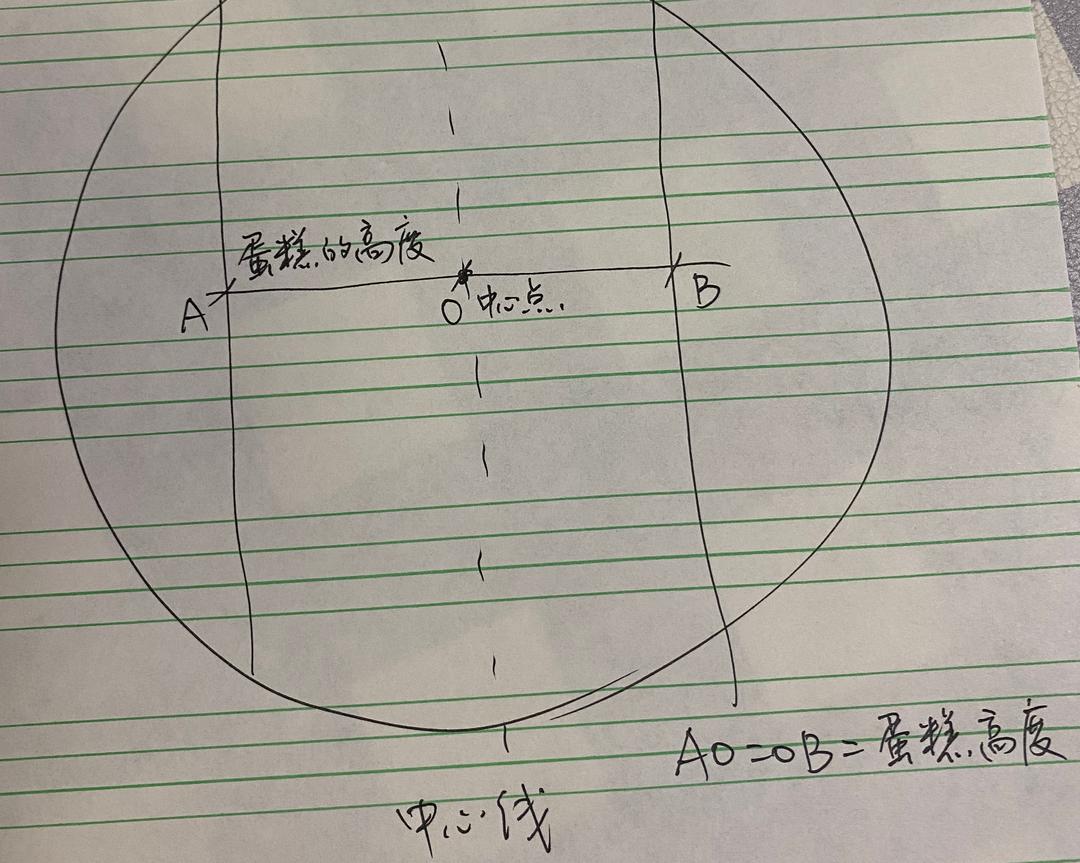 蛋糕的高度
A
O 中心点.
B
AO=OB=蛋糕高度
中心线